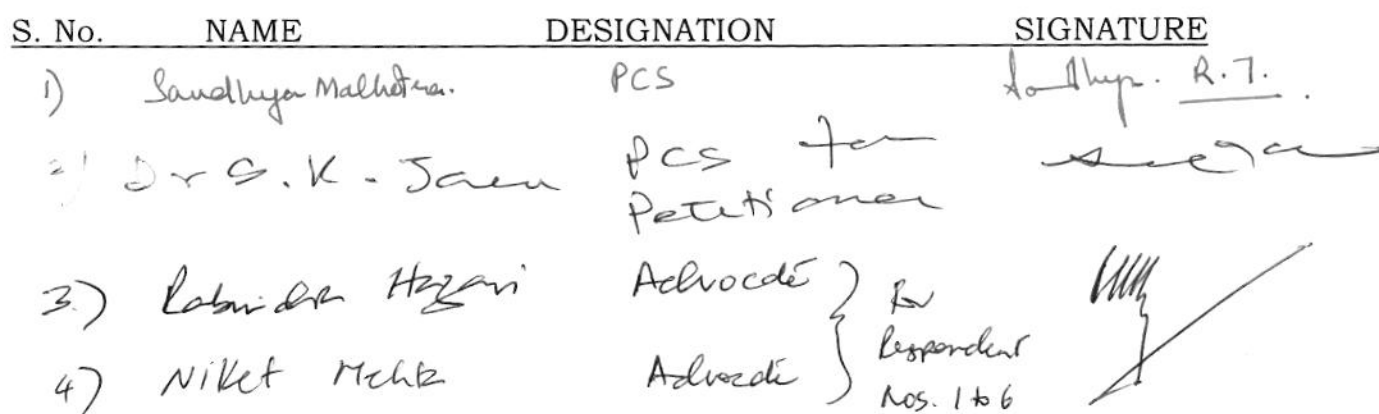 S. No. NAME DESIGNATION SIGNATURE
1) Sandhya Malhotra. PCS Sandhya. R.T.
2) Dr S. K. Jain PCS for
Petitioner
3.) Rabindra Hazari Advocate } for
Respondent
4) Niket Mehta Advocate Nos. 1 to 6